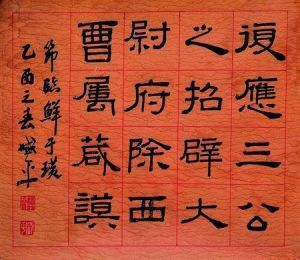 復應三公
之招辟大
尉府除西
曹属葴謨
节臨鮮于璜
乙酉之春